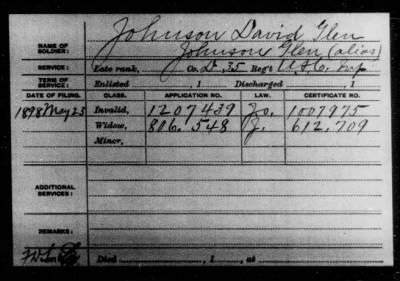 Johnson David Glen
NAME OF SOLDIER: Johnson Glen (alias)
SERVICE: Late rank, Co. D, 35 Reg't U.S.C. Inf
TERM OF SERVICE: Enlisted , 1 Discharged , 1
DATE OF FILING. CLASS. APPLICATION NO. LAW. CERTIFICATE NO.
1898 May 23 Invalid, 1207439 1007975
Widow, 806.548 612,709
Minor,
ADDITIONAL SERVICES:
REMARKS:
Died , 1 , at